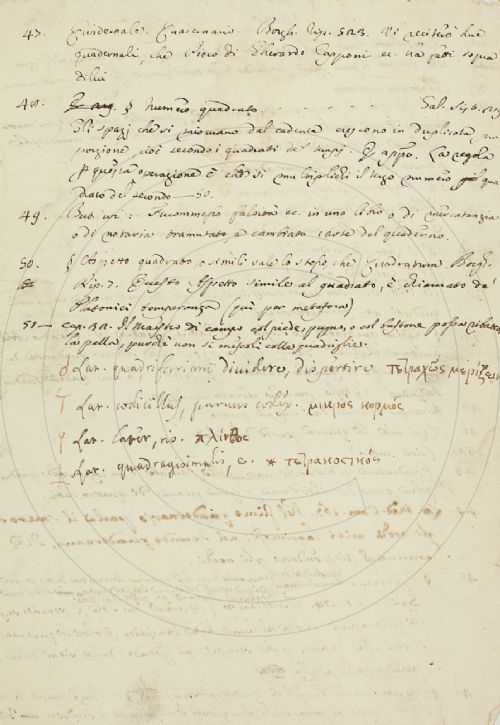 47. Quadernale. Quadernario Borgh. Rip. 523. Vi reciterò due
quadernali, che Piero di Gherardo Capponi ec. ha fatti sopra
di lui
48. § Numero quadrato . . . . . Gal. Sist.
Gli spazj che si misurano dal cadente crescono in duplicata pro
porzione, cioè secondo i quadrati de' tempi. La regola
questa operazione è che si multiplichi il numero qua
drato del secondo — 50.
49. falsità ec. in uno libro o di mercatanzia
o di notaria tramutato, e cambiato carte del quaderno.
50. § Aspetto quadrato, o simili vale lo stesso, che Quadratura Borg.
Rip. 7. Questo Aspetto simile al quadrato, è chiamato da'
Platonici temperanza (qui per metafora)
51 — cap. 32. Il Maestro di campo col piede, pugno, o col bastone possa ribatter
la palla, purchè non si mescoli colle quadriglie.
d Lat. quadrifariam dividere, dispertire τετραχῶς μερίζειν
T Lat. codicillus, parvus codex. μικρος κορμός
φ Lat. later, ris. πλίνθος
I Lat. quadragesimalis, e. * τετρακοστικός